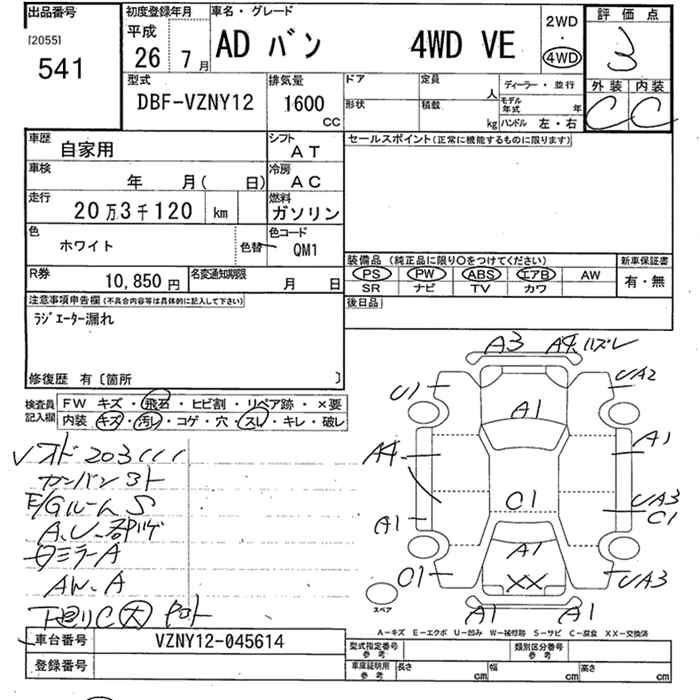 出品番号
[2055]
541
初度登録年月
平成
26 7月
車名・グレード
AD バン 4WD VE
2WD
・
4WD
評価点
3
外装 内装
C C
型式
DBF-VZNY12
排気量
1600
CC
ドア
定員
人
形状
積載
kg
ディーラー・並行
モデル年式 年
ハンドル 左・右
車歴
自家用
シフト
AT
車検
年 月( 日)
冷房
AC
走行
20万3千120 km
燃料
ガソリン
色
ホワイト
色替
色コード
QM1
R券
10,850円
名変通知期限
月 日
セールスポイント(正常に機能するものに限ります)
装備品 (純正品に限り○をつけてください)
PS PW ABS エアB AW
SR ナビ TV カワ
新車保証書
有・無
後日品
注意事項申告欄(不具合内容等は具体的に記入して下さい)
ラジエーター漏れ
修復歴 有〔箇所 〕
検査員記入欄
FW キズ・飛石・ヒビ割・リペア跡・×要
内装 キズ・汚レ・コゲ・穴・スレ・キレ・破レ
203111
E/Gルーム S
ミラーA
AW.A
下廻りC 大
A3 A4 ハズレ
U1 UA2
A1
A4 A1
C1 UA3
C1
A1
A1
C1 XX UA3
A1 A1
スペア
A-キズ E-エクボ U-凹み W-補修跡 S-サビ C-腐食 XX-交換済
車台番号
VZNY12-045614
登録番号
型式指定番号
参考
類別区分番号
参考
車庫証明用
参考
長さ cm
幅 cm
高さ cm